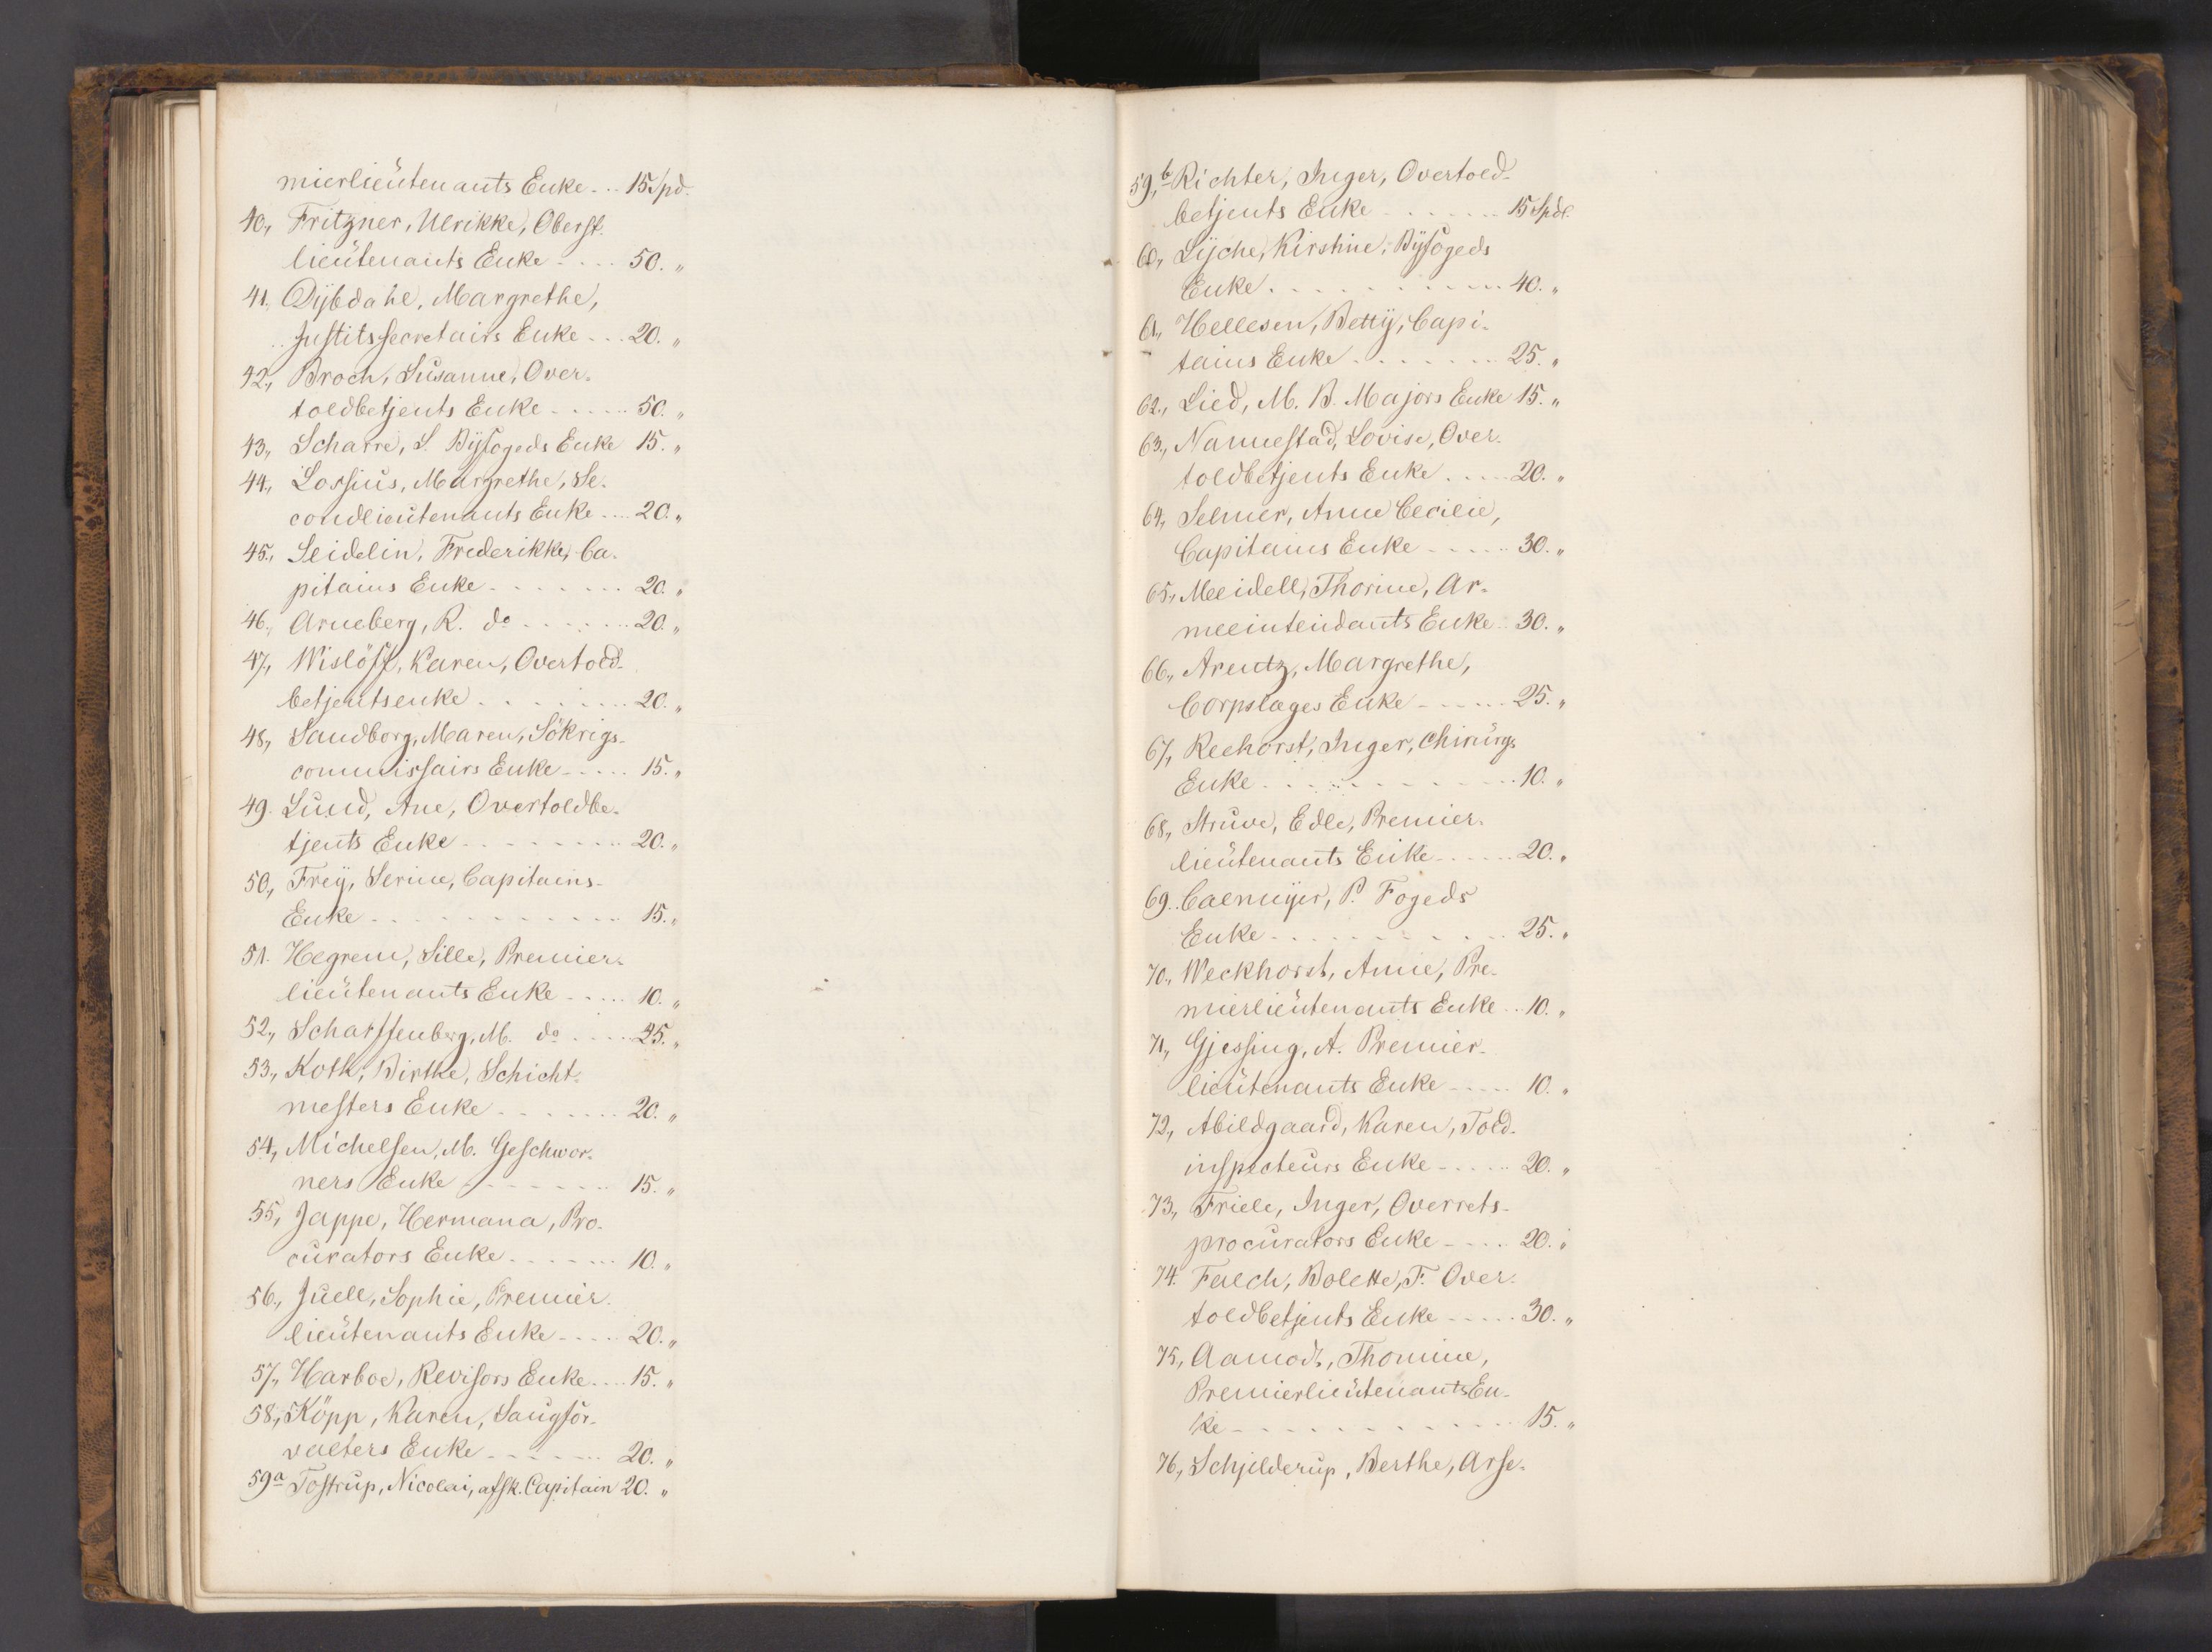 mierlieutenants Enke - .. 15 Spd.
40, Fritzner, Ulrikke, Oberst-
lieutenants Enke - . . . 50. „
41, Dybdahl, Margrethe,
Justitssecretairs Enke - . . 20. „
42, Broch, Susanne, Over-
toldbetjents Enke - . . . . 50. „
43, Scharre, S. Byfogeds Enke 15. „
44, Lossius, Margrethe, Se-
condlieutenants Enke . . . 20. „
45, Seidelin, Frederikke, Ca-
pitains Enke - . . . . . . 20. „
46, Arneberg, R. do . . . . . . 20. „
47, Wislöff, Karen, Overtold-
betjentsenke . . . . . . . 20. „
48, Sandborg, Maren, Sökrigs-
commissairs Enke - . . . 15. „
49. Lund, Ane, Overtoldbe-
tjents Enke - . . . . . . . 20. „
50, Frey, Serine, Capitains-
Enke - . . . . . . . . . . 15. „
51. Hegrem, Sille, Premier-
lieutenants Enke - . . . 10. „
52, Scharffenberg, M. do . . . . 25. „
53, Koth, Birthe, Schicht-
mesters Enke - . . . . . . 20. „
54, Michelsen, M. Geschwor-
ners Enke - . . . . . . 15. „
55, Jappe, Hermana, Pro-
curators Enke - . . . . . 10. „
56, Juell, Sophie, Premier-
lieutenants Enke - . . . 20. „
57, Harboe, Revisors Enke . . . 15. „
58, Köpp, Karen, Saugfor-
valters Enke - . . . . . 20. „
59a Tostrup, Nicolai, afsk. Capitain 20. „
59,b Richter, Inger, Overtold-
betjents Enke . . . . . . . 15 Spdl.
60, Lyche, Kirstine, Byfogeds
Enke . . . . . . . . . . . 40. „
61, Hellesen, Betty, Capi-
tains Enke . . . . . . . . 25. „
62, Lied, M. B. Majors Enke 15. „
63, Nannestad, Lovise, Over-
toldbetjents Enke . . . . 20. „
64, Selmer, Anne Cecilie,
Capitains Enke - . . . . 30. „
65, Meidell, Thorine, Ar-
meeintendants Enke . . 30. „
66, Arentz, Margrethe,
Corpslæges Enke - . . . . 25. „
67, Reehorst, Inger, Chirurgs
Enke . . . . . . . . . . . 10. „
68, Struve, Edle, Premier-
lieutenants Enke - . . . . 20. „
69. Calmeyer, P. Fogeds
Enke - . . . . . . . . . . 25. „
70, Weckhorst, Anne, Pre-
mierlieutenants Enke . . 10. „
71, Gjessing, A. Premier-
lieutenants Enke - . . . 10. „
72, Abildgaard, Karen, Told-
inspecteurs Enke - . . . . 20. „
73, Friele, Inger, Overrets-
procurators Enke - . . . 20. „
74. Falch, Bolette, F. Over-
toldbetjents Enke - . . . . 30. „
75, Aamodt, Thomine,
Premierlieutenants En-
ke - . . . . . . . . . . . 15. „
76, Schjelderup, Berthe, Arse-